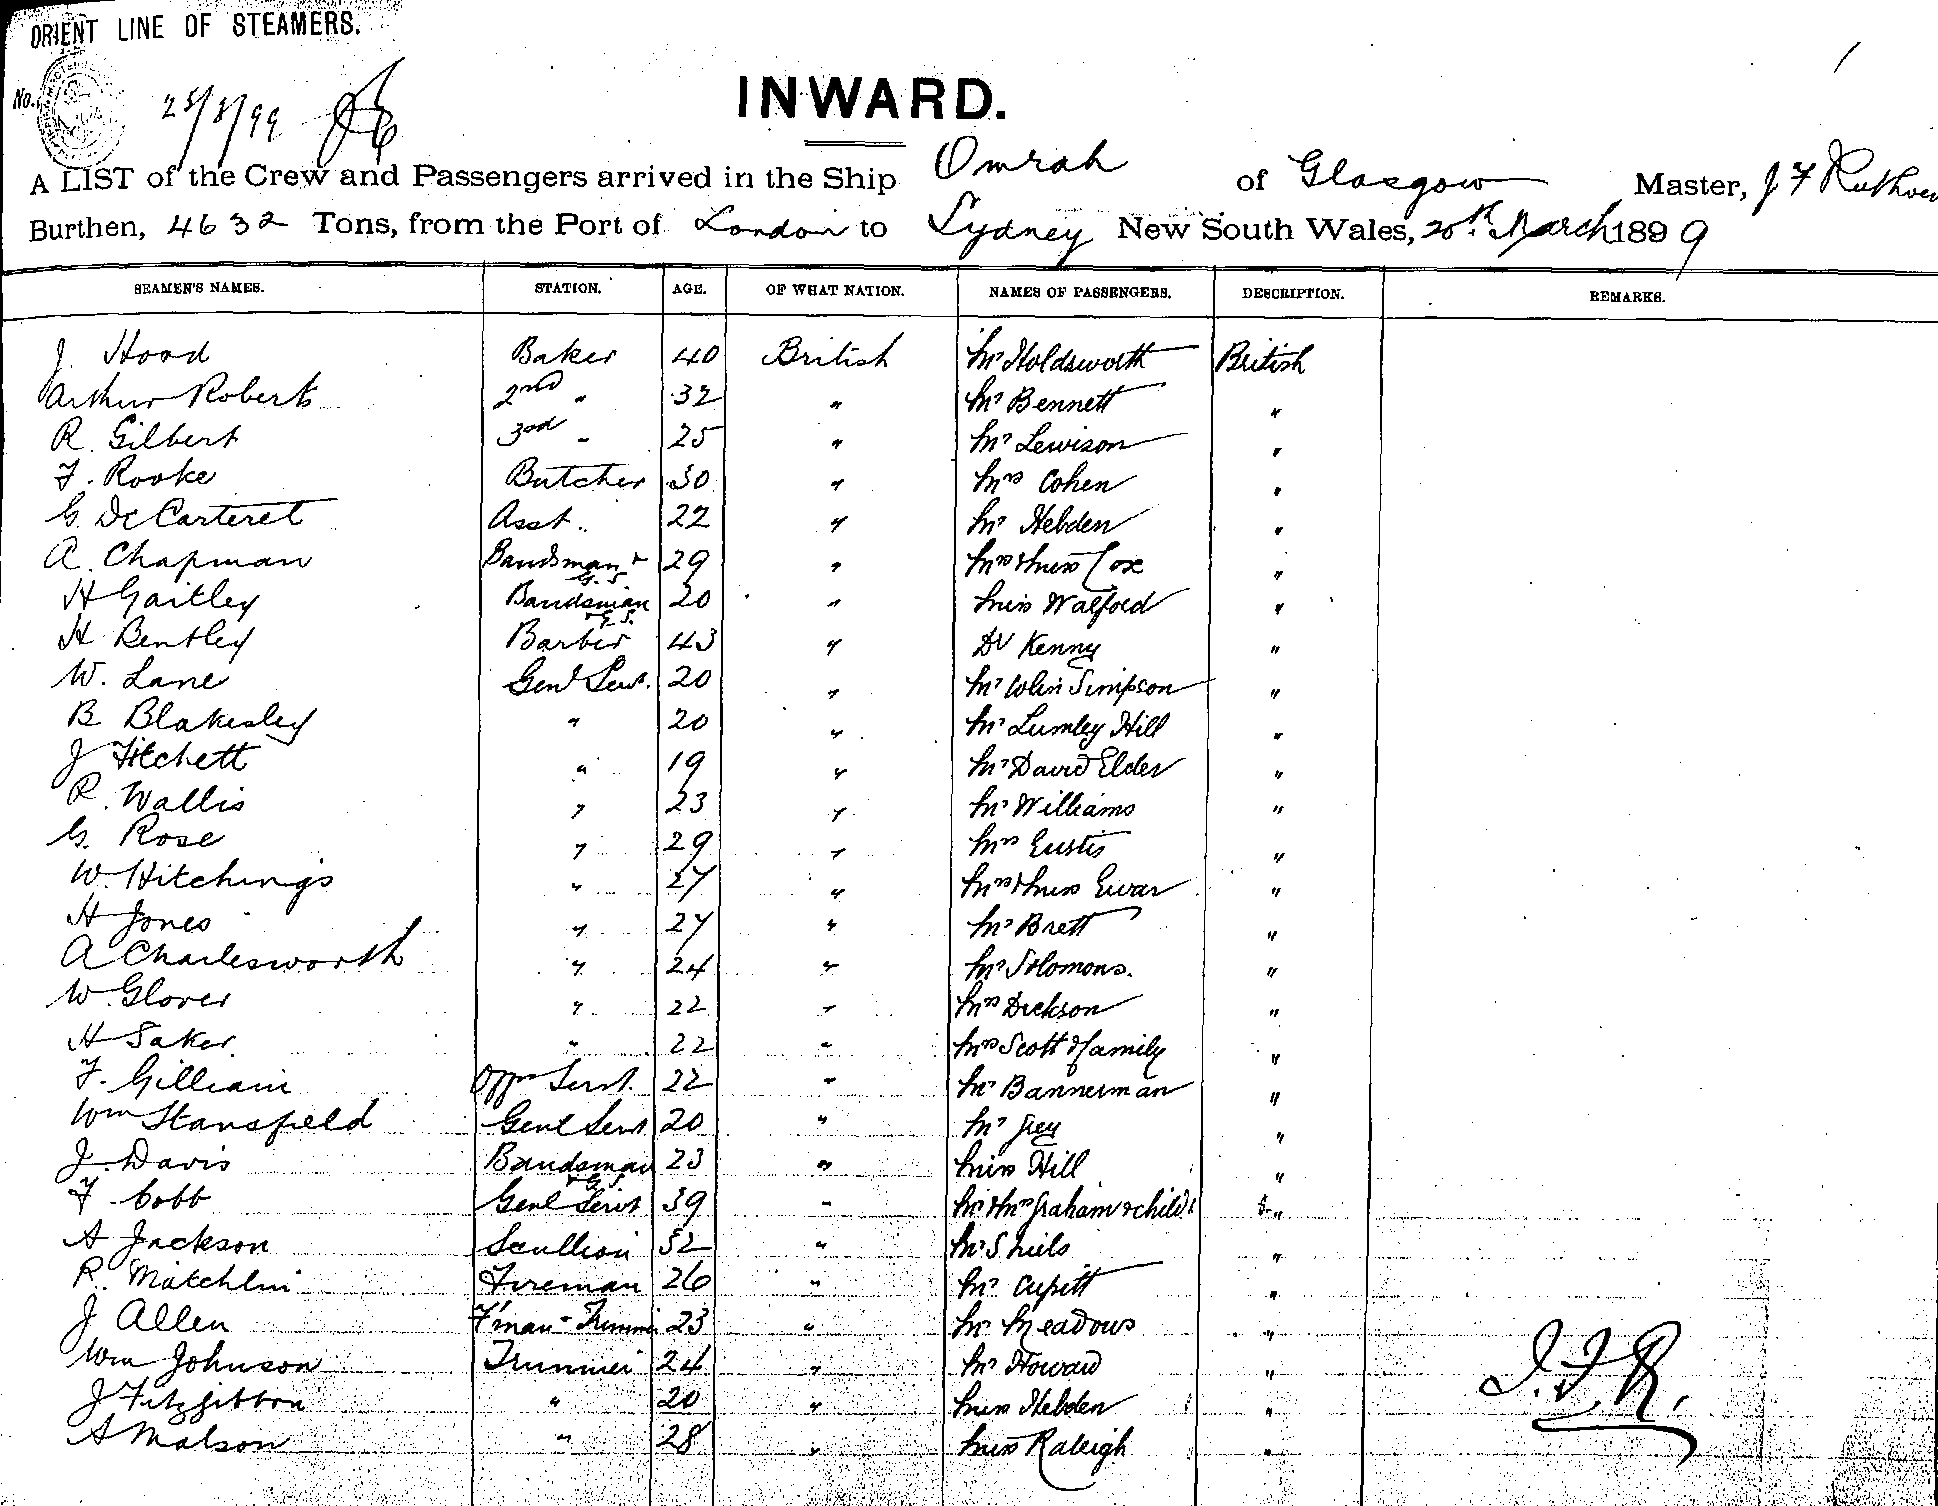 ORIENT LINE OF STEAMERS.
No.
INWARD.
A LIST of the Crew and Passengers arrived in the Ship Omrah of Glasgow Master, J F Ruthven
Burthen, 4632 Tons, from the Port of London to Sydney New South Wales, March 1899
SEAMEN'S NAMES. STATION. AGE. OF WHAT NATION. NAMES OF PASSENGERS. DESCRIPTION. REMARKS.
J. Hood Baker 40 British Mr Holdsworth British
Arthur Roberts 2nd " 32 " Mr Bennett "
R. Gilbert 3rd " 25 " Mr Lewison "
F. Rooke Butcher 30 " Mrs Cohen "
G. De Carteret Asst. 22 " Mr Hebden "
A. Chapman Bandsman + G.S 29 " Mrs & Miss Cox "
H Gaitley Bandsman + G.S. 20 " Miss Walford "
H. Bentley Barber 43 " Dr Kenny "
W. Lane Genl Servt. 20 " Mr Colin Simpson "
B Blakesley " 20 " Mr Lumley Hill "
J Fitchett " 19 " Mr David Elder "
R. Wallis " 23 " Mr Williams "
G. Rose " 29 " Mrs Eustis "
W. Hitchings " 27 " Mrs & Miss "
H Jones " 27 " Mr Brett "
A Charlesworth " 24 " Mr Solomons. "
W. Glover " 22 " Mrs Dickson "
H Saker " 22 " Mrs Scott & family "
F. Gilliam Servt. 22 " Mr Bannerman "
Wm Stansfield Genl Servt 20 " Mr Grey "
J. Davis Bandsman + G.S 23 " Miss Hill "
F. Cobb Genl Servt 39 " Mr & Mrs Graham & child "
A Jackson Scullion 52 " Mr Shiels "
R. Fireman 26 " Mr "
J Allen F'man - Trimmer 23 " Mr Meadows "
Wm Johnson Trimmer 24 " Mr Howard "
J Fitzgibbon " 20 " Miss Hebden "
A Matson " 28 " Miss Raleigh "
J.F.R.